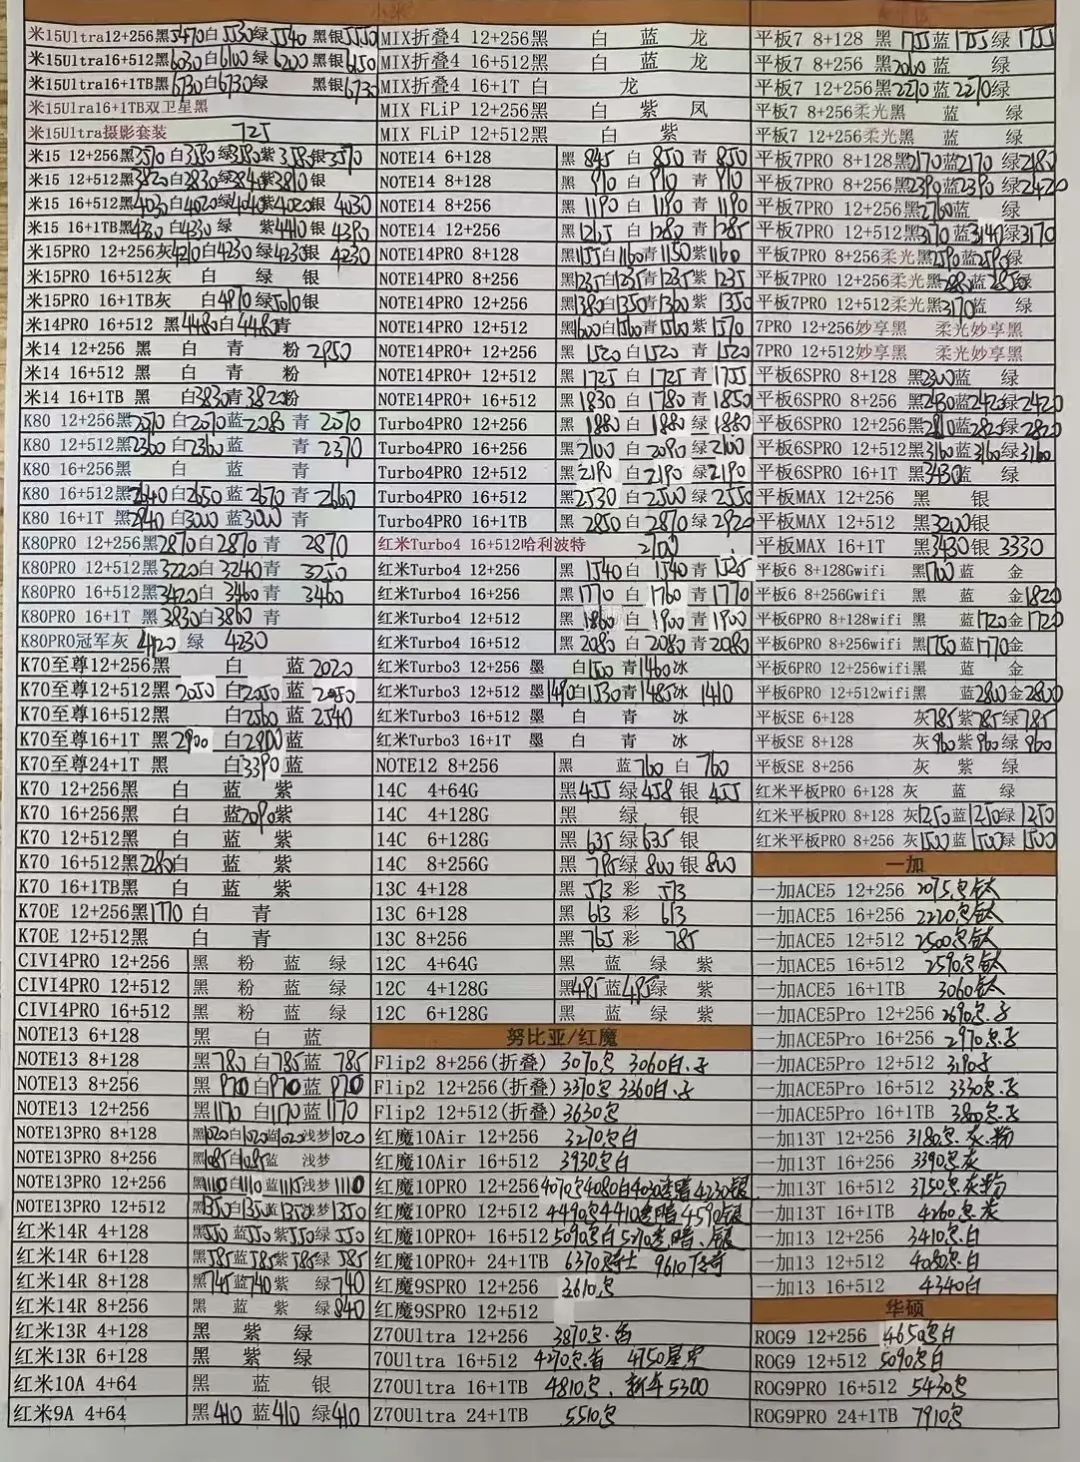 小米
米15Ultra12+256黑5470白5530绿5540 黑银5550
米15Ultra16+512黑6030白6100绿6200 黑银6150
米15Ultra16+1TB黑6730白6730绿 黑银6730
米15Ulra16+1TB双卫星黑
米15Ultra摄影套装 725
米15 12+256黑3570白3580绿3580紫3585银3570
米15 12+512黑3820白3830绿3840紫3810银
米15 16+512黑4030白4020绿4040紫4020银4030
米15 16+1TB黑4330白4330绿 紫4410银4390
米15PRO 12+256灰4210白4230绿4230银4230
米15PRO 16+512灰 白 绿 银
米15PRO 16+1TB灰 白4970绿5010银
米14PRO 16+512 黑4480白4485青
米14 12+256 黑 白 青 粉2950
米14 16+512 黑 白 青 粉
米14 16+1TB 黑 白3830青3820粉
K80 12+256黑2070白2070蓝2080青2070
K80 12+512黑2360白2360蓝 青2370
K80 16+256黑 白 蓝 青
K80 16+512黑2640白2650蓝2670青2660
K80 16+1T 黑2940白3000蓝3000青
K80PRO 12+256黑2870白2870青 2870
K80PRO 12+512黑3220白3240青 3250
K80PRO 16+512黑3420白3460青 3460
K80PRO 16+1T 黑3830白3860青
K80PRO冠军灰 4120 绿 4230
K70至尊12+256黑 白 蓝2020
K70至尊12+512黑2050 白2050蓝2050
K70至尊16+512黑 白2560蓝2540
K70至尊16+1T 黑2900 白2900蓝
K70至尊24+1T 黑 白3390蓝
K70 12+256黑 白 蓝 紫
K70 16+256黑 白 蓝2090紫
K70 12+512黑 白 蓝 紫
K70 16+512黑2280白 蓝 紫
K70 16+1TB黑 白 蓝 紫
K70E 12+256黑1770 白 青
K70E 12+512黑 白 青
CIVI4PRO 12+256 黑 粉 蓝 绿
CIVI4PRO 12+512 黑 粉 蓝 绿
CIVI4PRO 16+512 黑 粉 蓝 绿
NOTE13 6+128 黑 白 蓝
NOTE13 8+128 黑780白785蓝 785
NOTE13 8+256 黑970白970蓝970
NOTE13 12+256 黑1170白1170蓝1170
NOTE13PRO 8+128 黑1020白1020蓝1020浅梦1020
NOTE13PRO 8+256 黑1085白1085蓝 浅梦
NOTE13PRO 12+256 黑1110白1110蓝1115浅梦1110
NOTE13PRO 12+512 黑1350白1350蓝1355浅梦1350
红米14R 4+128 黑550蓝550紫550绿550
红米14R 6+128 黑585蓝585紫585绿585
红米14R 8+128 黑745蓝740紫 绿740
红米14R 8+256 黑 蓝 紫 绿840
红米13R 4+128 黑 紫 绿
红米13R 6+128 黑 紫 绿
红米10A 4+64 黑 蓝 银
红米9A 4+64 黑410 蓝410 绿410
MIX折叠4 12+256黑 白 蓝 龙
MIX折叠4 16+512黑 白 蓝 龙
MIX折叠4 16+1T 白 龙
MIX FLiP 12+256黑 白 紫 凤
MIX FLiP 12+512黑 白 紫
NOTE14 6+128 黑845白850青850
NOTE14 8+128 黑910白910青910
NOTE14 8+256 黑1190白1190青1190
NOTE14 12+256 黑1265白1280青1285
NOTE14PRO 8+128 黑1155白1160青1150紫1160
NOTE14PRO 8+256 黑1235白1235青1235紫1235
NOTE14PRO 12+256 黑1380白1350青1360紫1350
NOTE14PRO 12+512 黑1600白1560青1560紫1570
NOTE14PRO+ 12+256 黑1520白1520青1520
NOTE14PRO+ 12+512 黑1725白1725青1755
NOTE14PRO+ 16+512 黑1830白1780青1850
Turbo4PRO 12+256 黑1880白1880绿1880
Turbo4PRO 16+256 黑2100白2090绿2100
Turbo4PRO 12+512 黑2190白2190绿2190
Turbo4PRO 16+512 黑2530白2500绿2550
Turbo4PRO 16+1TB 黑2850白2870绿2920
红米Turbo4 16+512哈利波特 2700
红米Turbo4 12+256 黑1540白1540青1525
红米Turbo4 16+256 黑1770白1760青1770
红米Turbo4 12+512 黑1860白1900青1900
红米Turbo4 16+512 黑2080白2080青2080
红米Turbo3 12+256 墨 白1500青1460冰
红米Turbo3 12+512 墨1490白1530青1485冰1410
红米Turbo3 16+512 墨 白 青 冰
红米Turbo3 16+1T 墨 白 青 冰
NOTE12 8+256 黑 蓝760白760
14C 4+64G 黑455绿458银455
14C 4+128G 黑 绿 银
14C 6+128G 黑635绿635银
14C 8+256G 黑795绿800银800
13C 4+128 黑573彩 573
13C 6+128 黑613彩 613
13C 8+256 黑765彩 785
12C 4+64G 黑 蓝 绿 紫
12C 4+128G 黑495蓝495绿 紫
12C 6+128G 黑 蓝 绿 紫
努比亚/红魔
Flip2 8+256(折叠) 3070黑 3060白.子
Flip2 12+256(折叠) 3370黑 3360白.子
Flip2 12+512(折叠)3630黑
红魔10Air 12+256 3270黑白
红魔10Air 16+512 3930黑白
红魔10PRO 12+256 4070黑4080白4030透暗4230银
红魔10PRO 12+512 4490黑4410透暗4590银
红魔10PRO+ 16+512 5090黑白5270透暗、银
红魔10PRO+ 24+1TB 6370骑士 9610传奇
红魔9SPRO 12+256 3610黑
红魔9SPRO 12+512
Z70Ultra 12+256 3870黑.杏
70Ultra 16+512 4270黑.杏 4750星空
Z70Ultra 16+1TB 4810黑、新年5300
Z70Ultra 24+1TB 5510黑
平板7 8+128 黑1755蓝1755绿1755
平板7 8+256 黑2060 蓝 绿
平板7 12+256 黑2270蓝2270绿
平板7 8+256柔光黑 蓝 绿
平板7 12+256柔光黑 蓝 绿
平板7PRO 8+128黑2170蓝2170绿2180
平板7PRO 8+256黑2390蓝2390绿2420
平板7PRO 12+256黑2760蓝 绿
平板7PRO 12+512黑3170蓝3140绿3170
平板7PRO 8+256柔光黑2590蓝2595绿
平板7PRO 12+256柔光黑2880蓝2850绿
平板7PRO 12+512柔光黑3170蓝 绿
7PRO 12+256妙享黑 柔光妙享黑
7PRO 12+512妙享黑 柔光妙享黑
平板6SPRO 8+128 黑2300蓝 绿
平板6SPRO 8+256 黑2430蓝2420绿2420
平板6SPRO 12+256黑2810蓝2820绿2820
平板6SPRO 12+512黑3160蓝3160绿3160
平板6SPRO 16+1T 黑3430蓝 绿
平板MAX 12+256 黑 银
平板MAX 12+512 黑3200银
平板MAX 16+1T 黑3430银 3330
平板6 8+128Gwifi 黑1700蓝 金
平板6 8+256Gwifi 黑 蓝 金1820
平板6PRO 8+128wifi 黑 蓝1720金1720
平板6PRO 8+256wifi 黑1750蓝1770金
平板6PRO 12+256wifi黑 蓝 金
平板6PRO 12+512wifi黑 蓝2800金2800
平板SE 6+128 灰785紫785绿785
平板SE 8+128 灰960紫960绿960
平板SE 8+256 灰 紫 绿
红米平板PRO 6+128 灰 蓝 绿
红米平板PRO 8+128 灰1250蓝1250绿1250
红米平板PRO 8+256 灰1500蓝1500绿1500
一加
一加ACE5 12+256 2075黑钛
一加ACE5 16+256 2220黑钛
一加ACE5 12+512 2500黑钛
一加ACE5 16+512 2590黑钛
一加ACE5 16+1TB 3060钛
一加ACE5Pro 12+256 2690黑.子
一加ACE5Pro 16+256 2970黑.子
一加ACE5Pro 12+512 3190子
一加ACE5Pro 16+512 3330黑.子
一加ACE5Pro 16+1TB 3800黑.子
一加13T 12+256 3180黑.灰.粉
一加13T 16+256 3390黑灰
一加13T 16+512 3750黑灰粉
一加13T 16+1TB 4260黑灰
一加13 12+256 3410黑.白
一加13 12+512 4080黑白
一加13 16+512 4340白
华硕
ROG9 12+256 4650黑白
ROG9 12+512 5090黑白
ROG9PRO 16+512 5430黑
ROG9PRO 24+1TB 7910黑